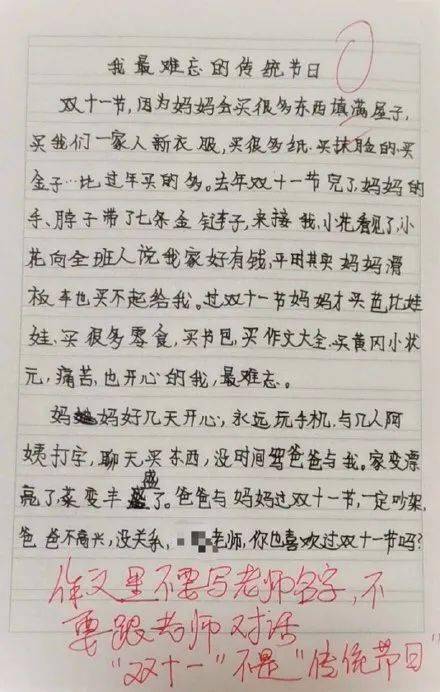 我最难忘的传统节日
双十一节,因为妈妈会买很多东西填满屋子,
买我们一家人新衣服,买很多纸.买抹脸的.买
金子…比过年买的多。去年双十一节完了,妈妈的
手、脖子带了七条金链子,来接我,小花看见了,小
花向全班人说我家好有钱,平时其实妈妈滑
板车也买不起给我。过双十一节妈妈才买芭比娃
娃、买很多零食,买书包,买作文大全、买黄冈小状
元,痛苦、也开心的我,最难忘。
妈妈好几天开心,永远玩手机,与几人阿
姨打字,聊天,买东西,没时间骂爸爸与我。家变漂
亮了,菜变丰盛了。爸爸与妈妈过双十一节,一定吵架,
爸爸不高兴,没关系,老师,你也喜欢过双十一节吗?
作文里不要写老师名字,不
要跟老师对话
"双十一"不是"传统节日"